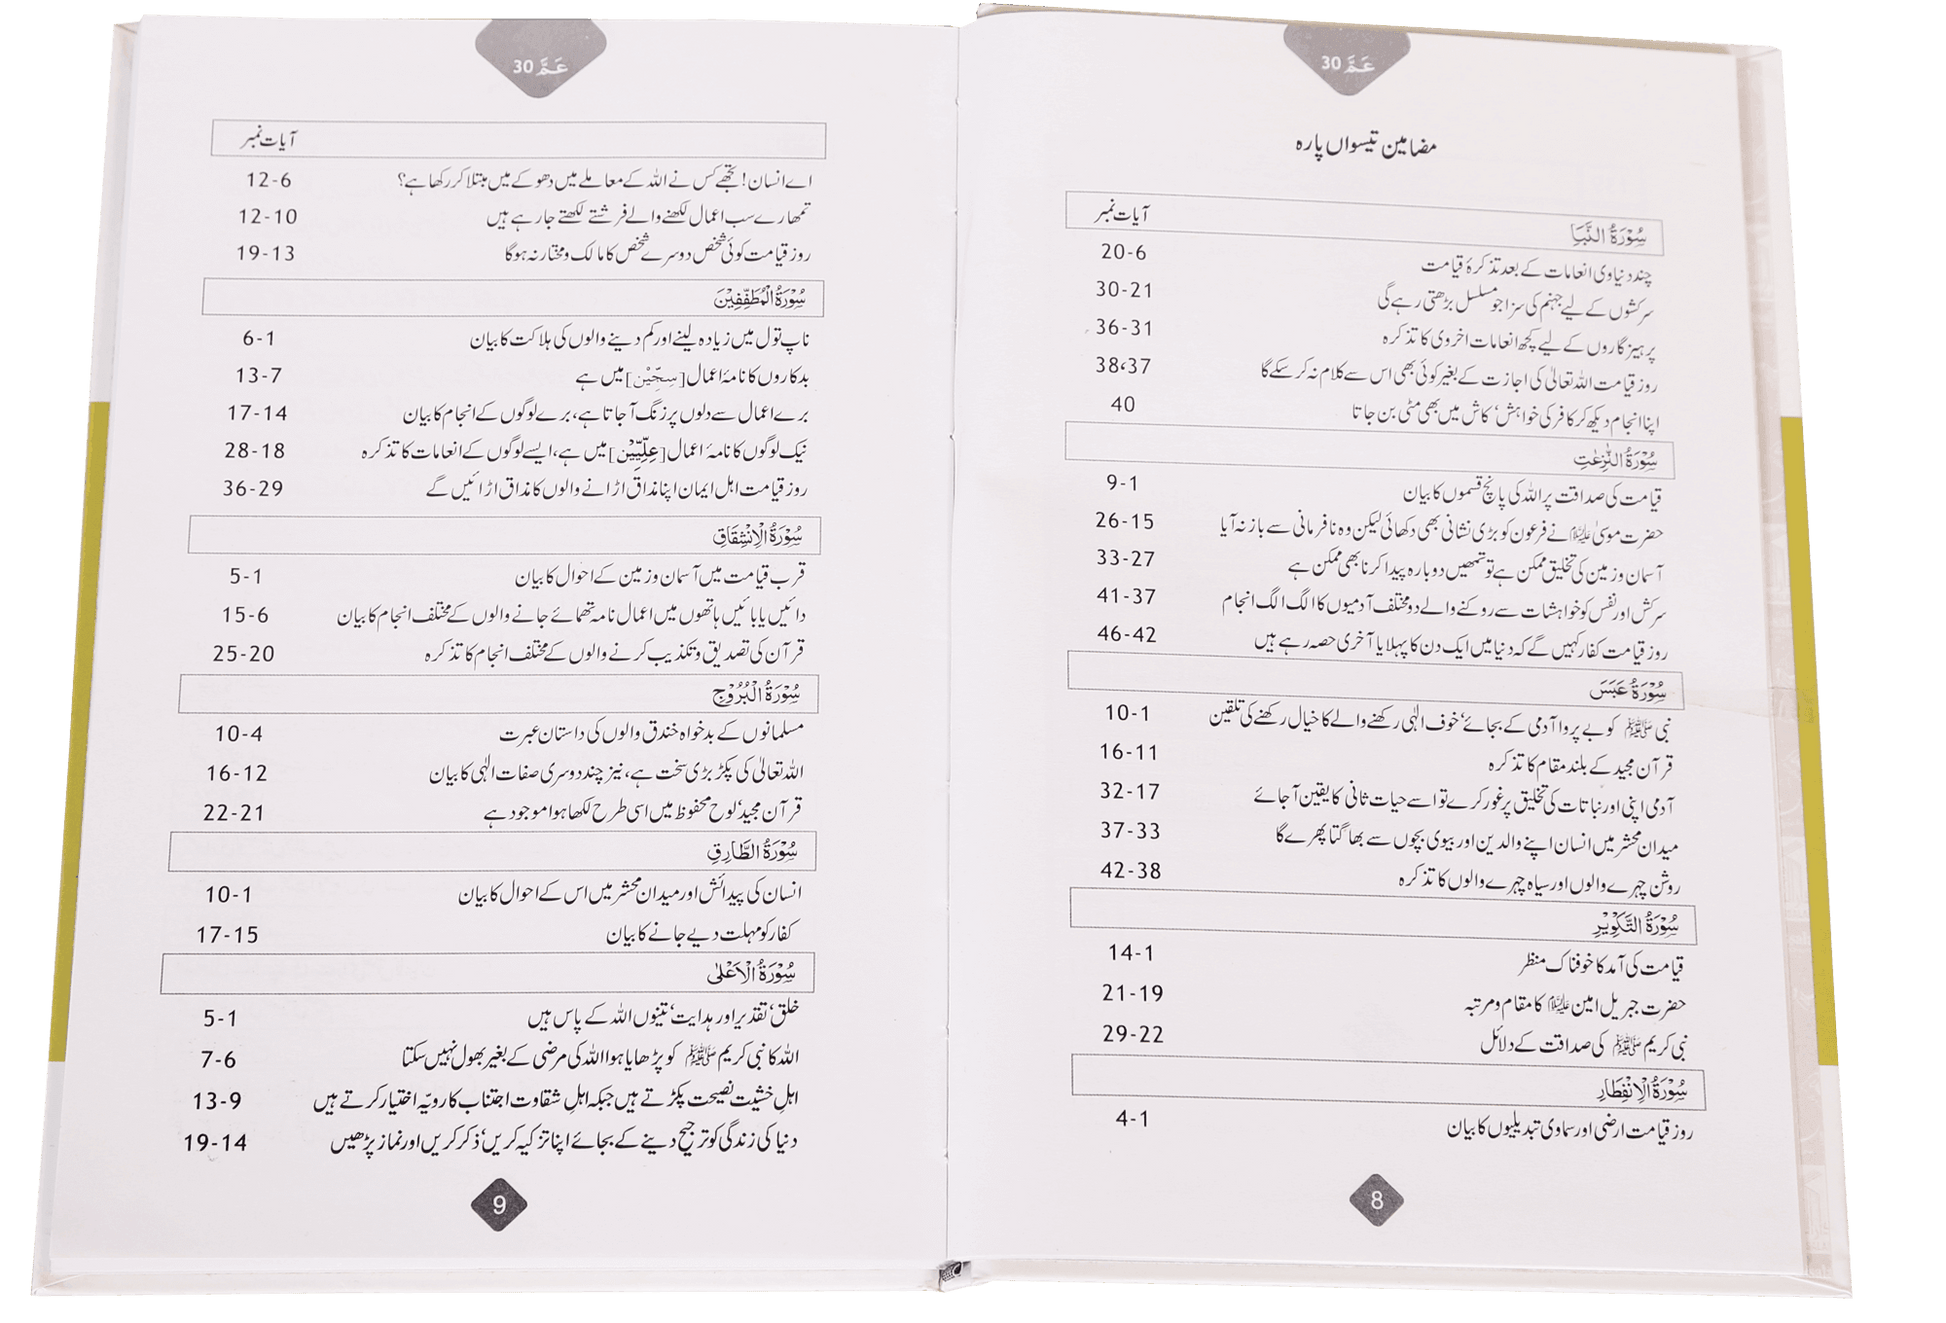 عَمَّ 30
مضامین تیسواں پارہ
آیات نمبر
سُوْرَةُ النَّبَاِ
چند دنیاوی انعامات کے بعد تذکرۂ قیامت 6-20
سرکشوں کے لیے جہنم کی سزا جو مسلسل بڑھتی رہے گی 21-30
پرہیزگاروں کے لیے کچھ انعامات اخروی کا تذکرہ 31-36
روز قیامت اللہ تعالیٰ کی اجازت کے بغیر کوئی بھی اس سے کلام نہ کر سکے گا 37،38
اپنا انجام دیکھ کر کافر کی خواہش‘ کاش میں بھی مٹی بن جاتا 40
سُوْرَةُ النّٰزِعٰتِ
قیامت کی صداقت پر اللہ کی پانچ قسموں کا بیان 1-9
حضرت موسیٰ علیہ السلام نے فرعون کو بڑی نشانی بھی دکھائی لیکن وہ نافرمانی سے باز نہ آیا 15-26
آسمان و زمین کی تخلیق ممکن ہے تو تمھیں دوبارہ پیدا کرنا بھی ممکن ہے 27-33
سرکش اور نفس کو خواہشات سے روکنے والے دو مختلف آدمیوں کا الگ الگ انجام 37-41
روز قیامت کفار کہیں گے کہ دنیا میں ایک دن کا پہلا یا آخری حصہ رہے ہیں 42-46
سُوْرَةُ عَبَسَ
نبی ﷺ کو بے پروا آدمی کے بجائے‘ خوف الٰہی رکھنے والے کا خیال رکھنے کی تلقین 1-10
قرآن مجید کے بلند مقام کا تذکرہ 11-16
آدمی اپنی اور نباتات کی تخلیق پر غور کرے تو اسے حیات ثانی کا یقین آ جائے 17-32
میدان محشر میں انسان اپنے والدین اور بیوی بچوں سے بھاگتا پھرے گا 33-37
روشن چہرے والوں اور سیاہ چہرے والوں کا تذکرہ 38-42
سُوْرَةُ التَّكْوِيْرِ
قیامت کی آمد کا خوفناک منظر 1-14
حضرت جبریل امین علیہ السلام کا مقام و مرتبہ 19-21
نبی کریم ﷺ کی صداقت کے دلائل 22-29
سُوْرَةُ الْاِنْفِطَارِ
روز قیامت ارضی اور سماوی تبدیلیوں کا بیان 1-4
8
عَمَّ 30
آیات نمبر
اے انسان! تجھے کس نے اللہ کے معاملے میں دھوکے میں مبتلا کر رکھا ہے؟ 6-12
تمھارے سب اعمال لکھنے والے فرشتے لکھتے جا رہے ہیں 10-12
روز قیامت کوئی شخص دوسرے شخص کا مالک و مختار نہ ہوگا 13-19
سُوْرَةُ الْمُطَفِّفِيْنَ
ناپ تول میں زیادہ لینے اور کم دینے والوں کی ہلاکت کا بیان 1-6
بدکاروں کا نامۂ اعمال [سِجِّيْن] میں ہے 7-13
برے اعمال سے دلوں پر زنگ آ جاتا ہے، برے لوگوں کے انجام کا بیان 14-17
نیک لوگوں کا نامۂ اعمال [عِلِّيِّيْن] میں ہے، ایسے لوگوں کے انعامات کا تذکرہ 18-28
روز قیامت اہل ایمان اپنا مذاق اڑانے والوں کا مذاق اڑائیں گے 29-36
سُوْرَةُ الْاِنْشِقَاقِ
قرب قیامت میں آسمان و زمین کے احوال کا بیان 1-5
دائیں یا بائیں ہاتھوں میں اعمال نامہ تھمائے جانے والوں کے مختلف انجام کا بیان 6-15
قرآن کی تصدیق و تکذیب کرنے والوں کے مختلف انجام کا تذکرہ 20-25
سُوْرَةُ الْبُرُوْجِ
مسلمانوں کے بدخواہ خندق والوں کی داستان عبرت 4-10
اللہ تعالیٰ کی پکڑ بڑی سخت ہے، نیز چند دوسری صفات الٰہی کا بیان 12-16
قرآن مجید‘ لوح محفوظ میں اسی طرح لکھا ہوا موجود ہے 21-22
سُوْرَةُ الطَّارِقِ
انسان کی پیدائش اور میدان محشر میں اس کے احوال کا بیان 1-10
کفار کو مہلت دیے جانے کا بیان 15-17
سُوْرَةُ الْاَعْلٰى
خلق‘ تقدیر اور ہدایت‘ تینوں اللہ کے پاس ہیں 1-5
اللہ کا نبی کریم ﷺ کو پڑھایا ہوا اللہ کی مرضی کے بغیر بھول نہیں سکتا 6-7
اہلِ خشیت نصیحت پکڑتے ہیں جبکہ اہلِ شقاوت اجتناب کا رویّہ اختیار کرتے ہیں 9-13
دنیا کی زندگی کو ترجیح دینے کے بجائے اپنا تزکیہ کریں‘ ذکر کریں اور نماز پڑھیں 14-19
9